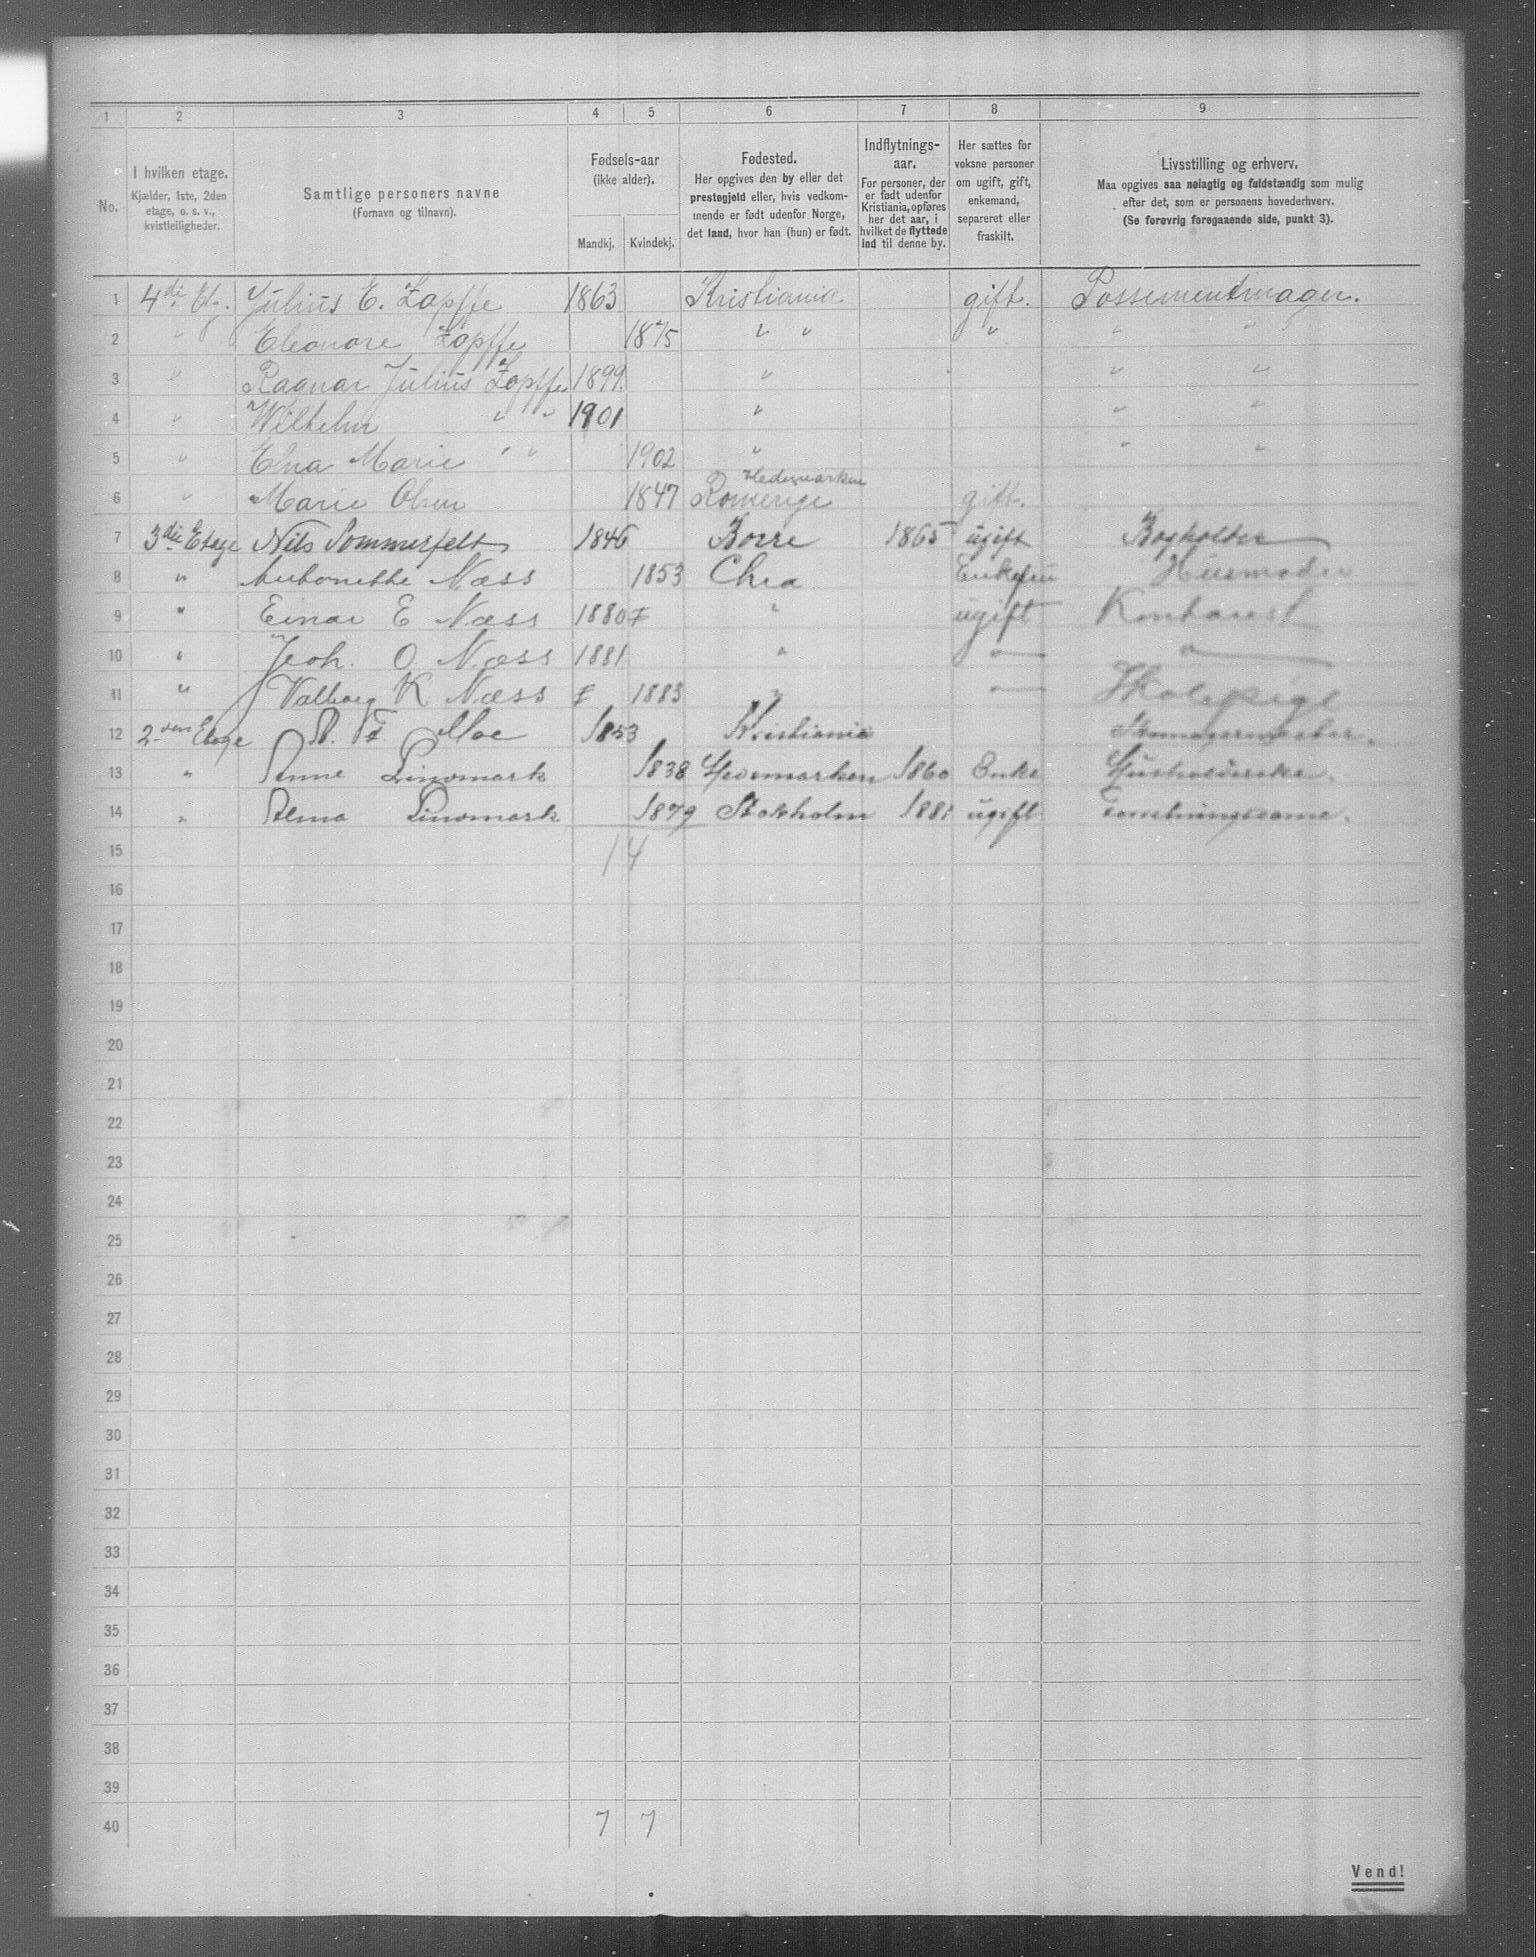 1 2 3 4 5 6 7 8 9
No.
I hvilken etage.
Kjælder, 1ste, 2den
etage, o. s. v.,
kvistleiligheder.
Samtlige personers navne
(Fornavn og tilnavn).
Fødsels-aar
(ikke alder).
Mandkj. Kvindekj.
Fødested.
Her opgives den by eller det
prestegjeld eller, hvis vedkom-
mende er født udenfor Norge,
det land, hvor han (hun) er født.
Indflytnings-
aar.
For personer, der
er født udenfor
Kristiania, opføres
her det aar, i
hvilket de flyttede
ind til denne by.
Her sættes for
voksne personer
om ugift, gift,
enkemand,
separeret eller
fraskilt.
Livsstilling og erhverv.
Maa opgives saa nøiagtig og fuldstændig som mulig
efter det, som er personens hovederhverv.
(Se forøvrig foregaaende side, punkt 3).
1 4di Etg. Julius E. Zapffe 1863 Kristiania gift. Possementmager.
2 " Eleonore Zapffe 1875 " " " " "
3 " Ragnar Julius Zapffe 1899. " " "
4 " Wilhelm " " 1901 " " "
5 " Elna Marie " " 1902 " " "
Hedemarken
6 " Marie Olsen 1847 Romerige gift.
7 3die Etage Nils Sommerfelt 1846 Borre 1865 ugift Bogholder
8 " Antonette Næss 1853 Chra Enkefru Husmoder
9 " Einar E Næss 1880 " ugift Kontorist
10 " Joh. O. Næss 1881 " — —
11 " Valborg K Næss 1883 " — Skolepige
12 2den Etage A. F. Moe 1853 Kristiania
13 " Anne Lindmark 1838 Hedemarken 1860 Enke Husholderske.
14 " Alma Lindmark 1879 Stokholm 1881 ugift Forretningsdame.
15 14
16
17
18
19
20
21
22
23
24
25
26
27
28
29
30
31
32
33
34
35
36
37
38
39
40 7 7
Vend!